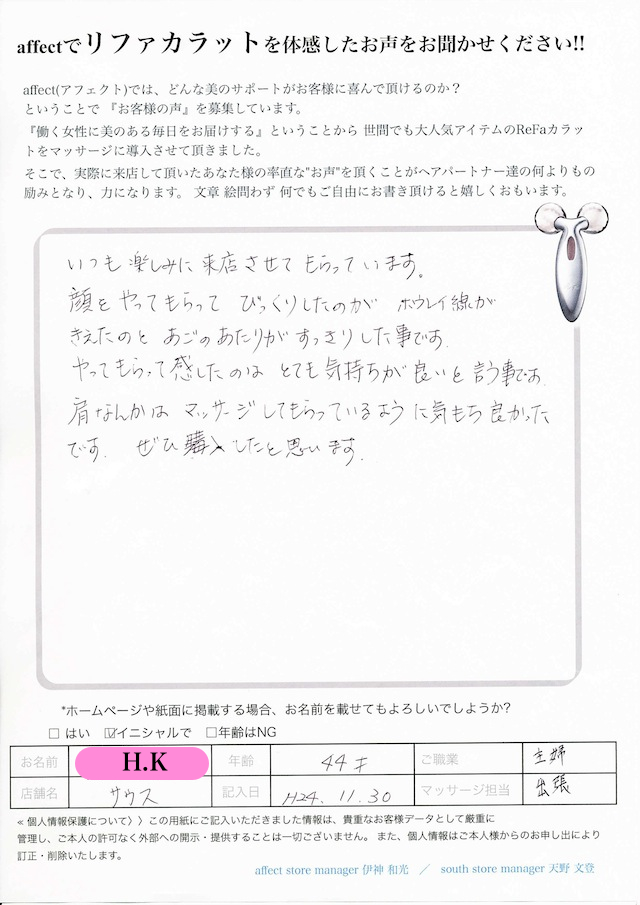 affectでリファカラットを体感したお声をお聞かせください!!
affect(アフェクト)では、どんな美のサポートがお客様に喜んで頂けるのか？
ということで『お客様の声』を募集しています。
『働く女性に美のある毎日をお届けする』ということから 世間でも大人気アイテムのReFaカラッ
トをマッサージに導入させて頂きました。
そこで、実際に来店して頂いたあなた様の率直な"お声"を頂くことがヘアパートナー達の何よりもの
励みとなり、力になります。 文章 絵問わず 何でもご自由にお書き頂けると嬉しくおもいます。
いつも楽しみに来店させてもらっています。
顔をやってもらって びっくりしたのが ホウレイ線が
きえたのと あごのあたりがすっきりした事です.
やってもらって感したのは とても気持ちが良いと言う事です.
肩なんかは マッサージしてもらっているように気もち良かった
です. ぜひ購入したと思います.
*ホームページや紙面に掲載する場合、お名前を載せてもよろしいでしようか?
□ はい ☑イニシャルで □年齢はNG
お名前 H.K 年齢 44才 ご職業 主婦
店舗名 サウス 記入日 H24. 11. 30 マッサージ担当 出張
≪ 個人情報保護について〉〉この用紙にご記入いただきました情報は、貴重なお客様データとして厳重に
管理し、ご本人の許可なく外部への開示・提供することは一切ございません。 また、個人情報はご本人様からのお申し出により
訂正・削除いたします。
affect store manager 伊神 和光 ／ south store manager 天野 文登